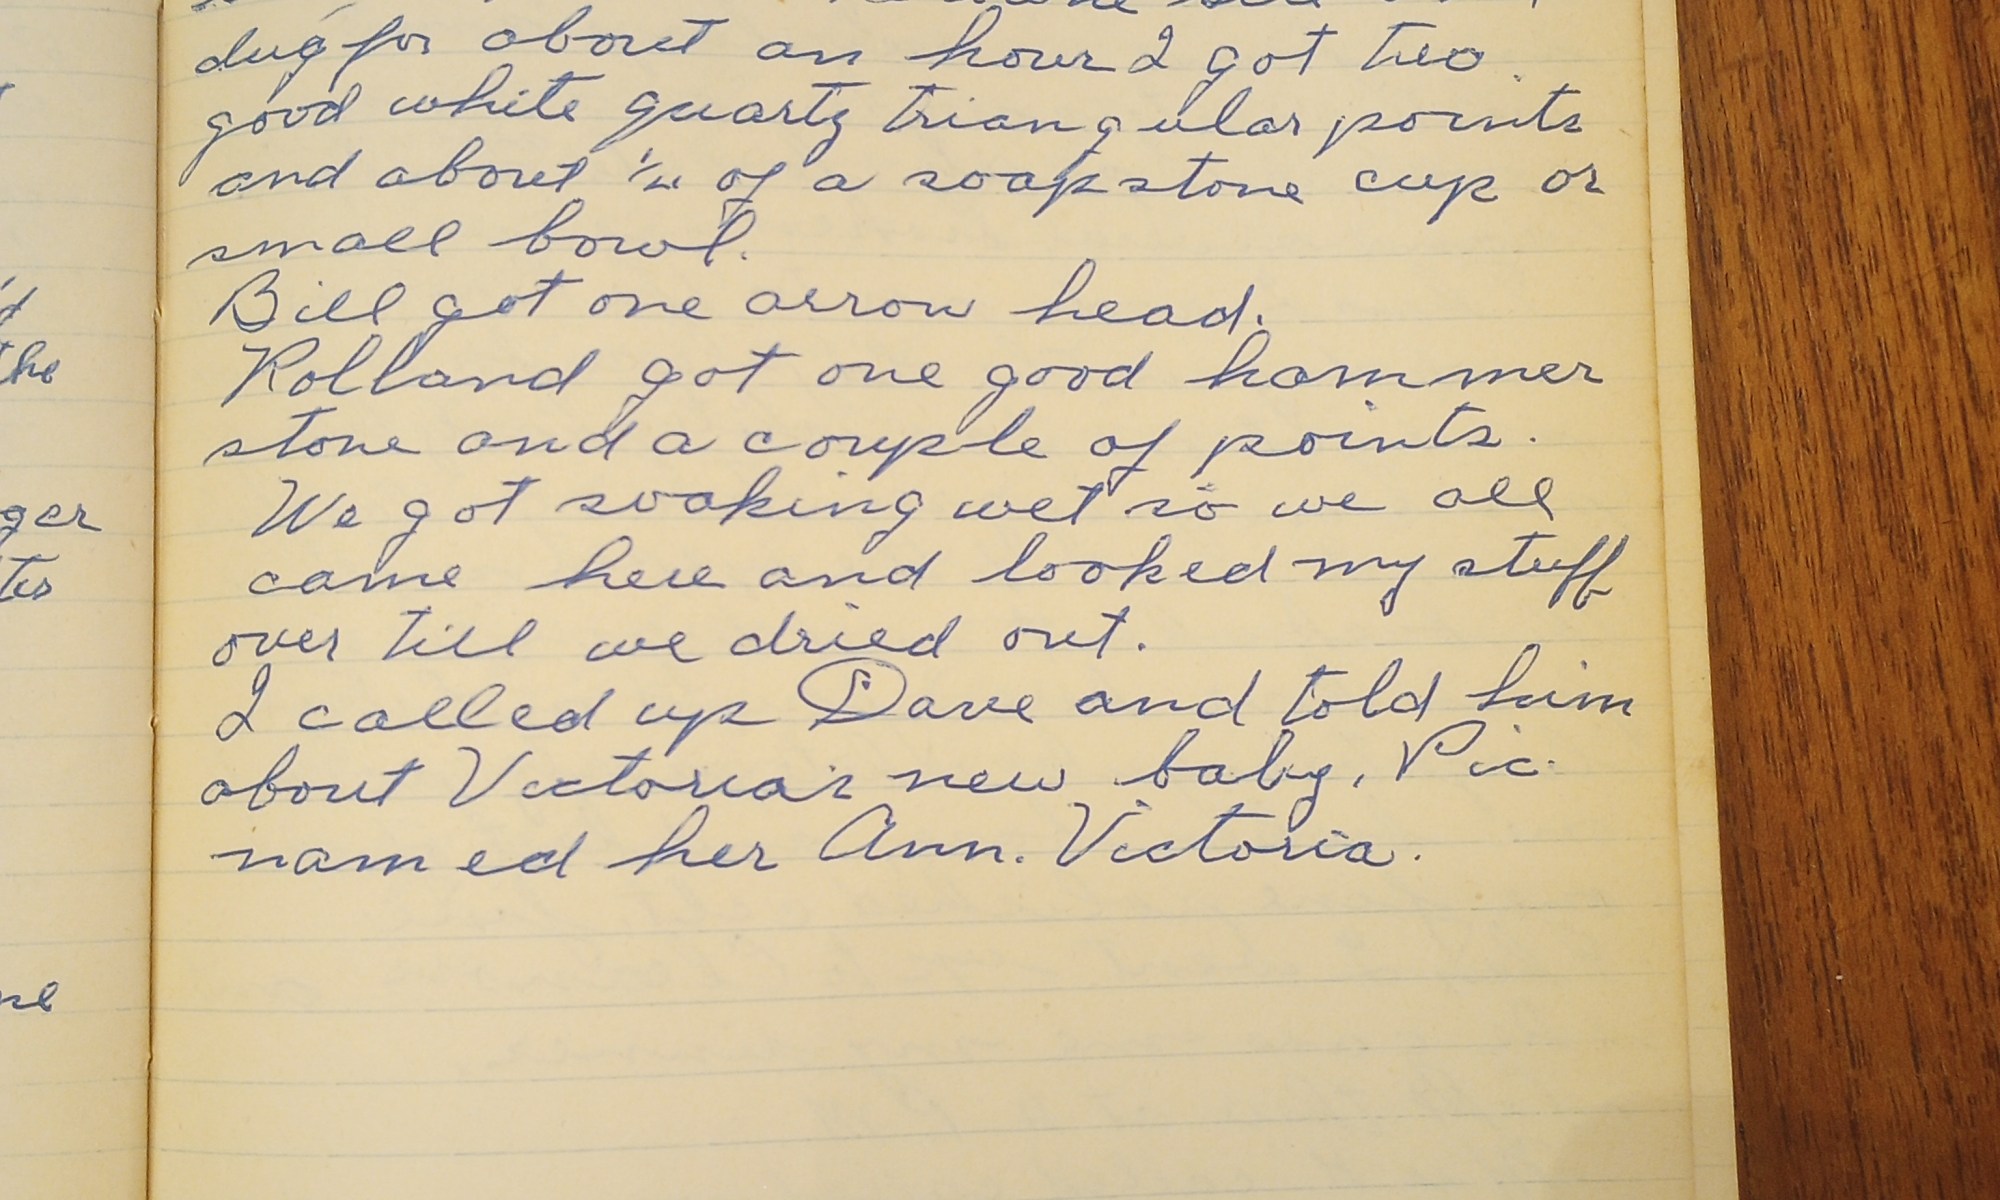 dug for about an hour I got two
good white quartz triangular points
and about of a soapstone cup or
small bowl.
Bill got one arrow head.
Rolland got one good hammer
stone and a couple of points.
We got soaking wet so we all
came here and looked my stuff
over till we dried out.
I called up Dave and told him
about Victoria's new baby, Vic.
named her Ann. Victoria.
the